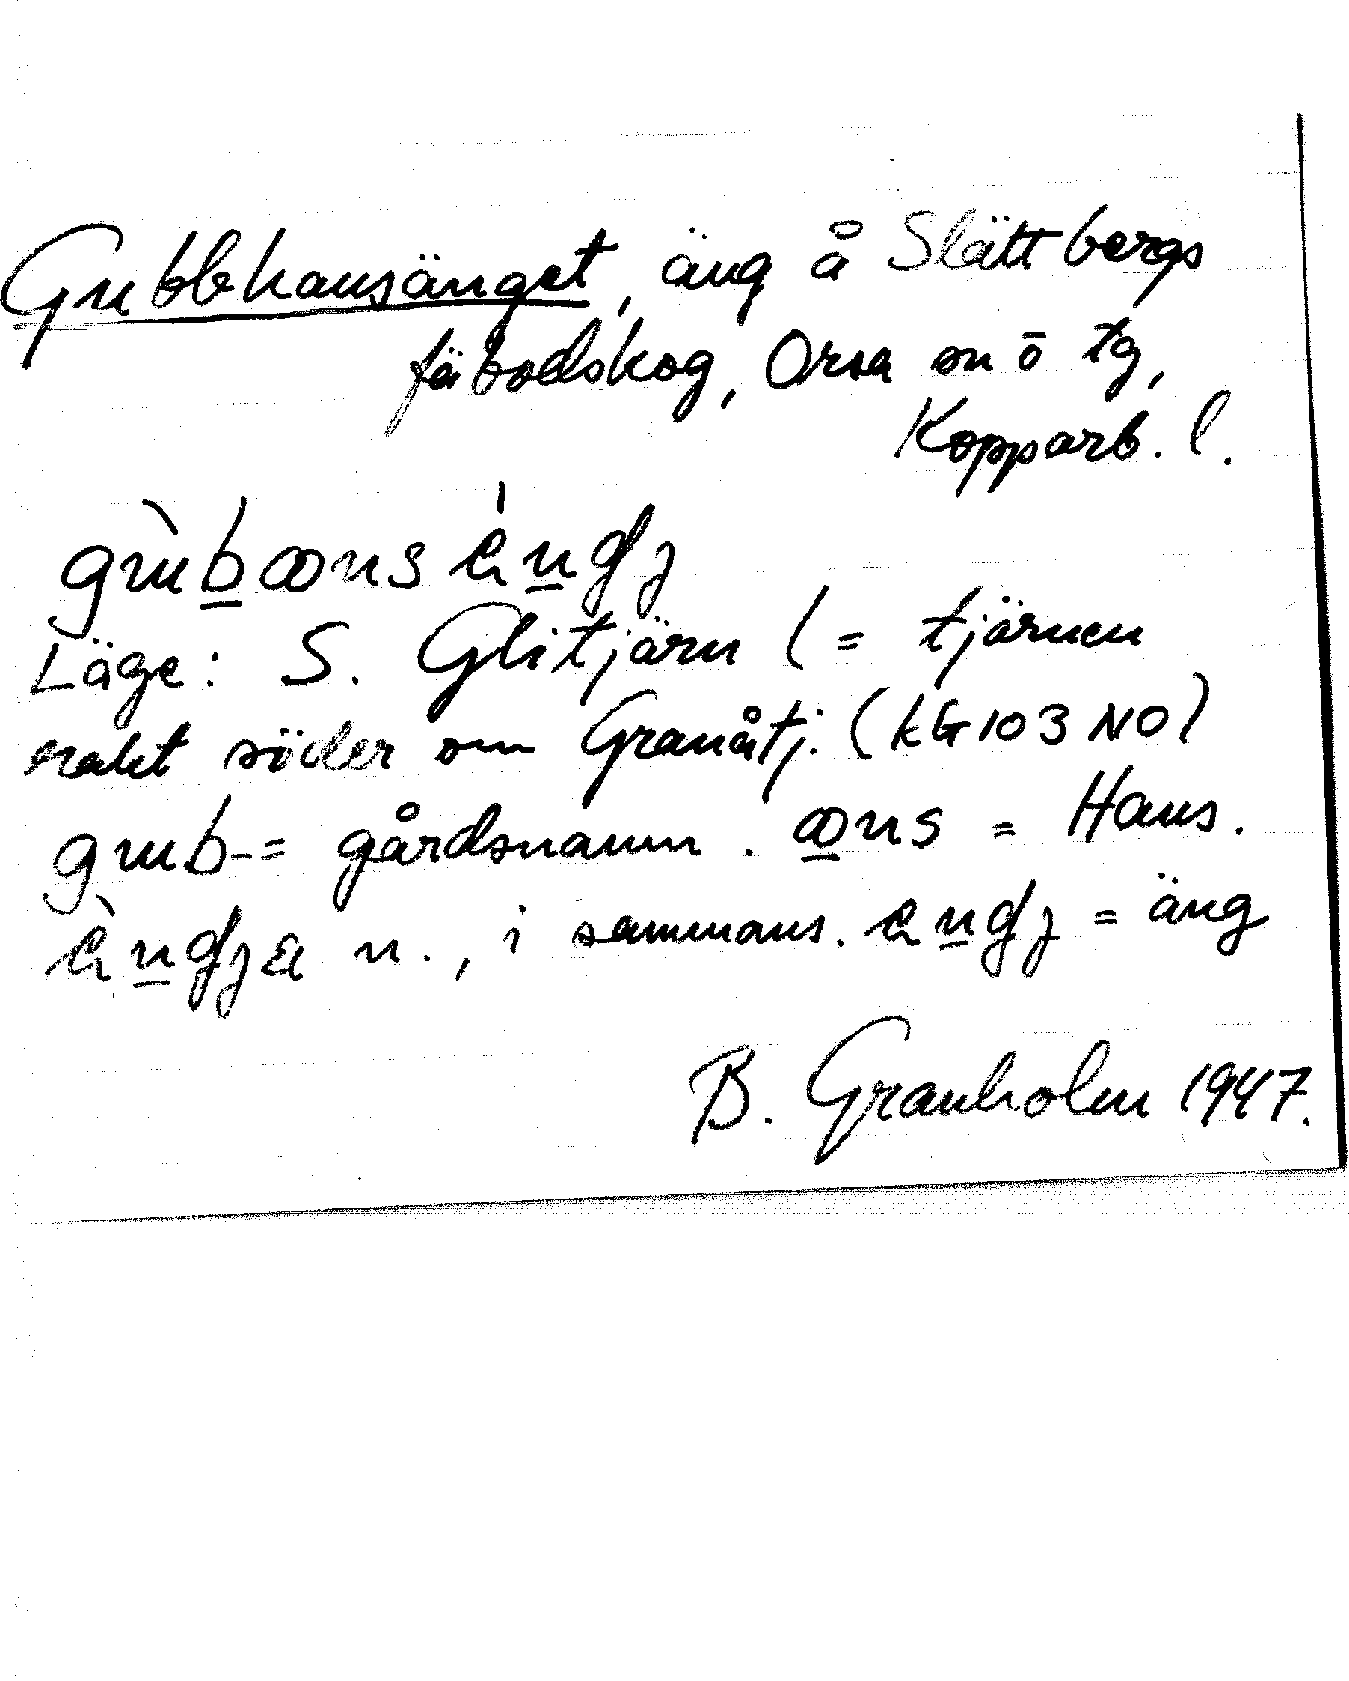 Gubbhansänget, äng å Slättbergs
fäbodskog, Orsa sn o tg,
Kopparb. l.
Läge: S. Glitjärn (= tjärnen
rakt söder om Granåtj. (kG 103 NO)
gub- = gårdsnamn. ꝏns = Hans.
n., i sammans. = äng
B. Granholm 1947.